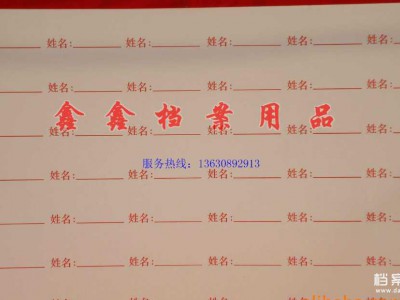 姓名: 姓名: 姓名: 姓名: 姓名:
姓名: 姓名: 姓名: 姓名: 姓名:
鑫鑫档案用品
姓名: 姓名: 姓名: 姓名: 姓名:
服务热线：13630892913
姓名: 姓名: 姓名: 姓名: 姓名:
姓名: 姓名: 姓名: 姓名: 姓名:
姓名: 姓名: 姓名: 姓名: 姓名:
档案